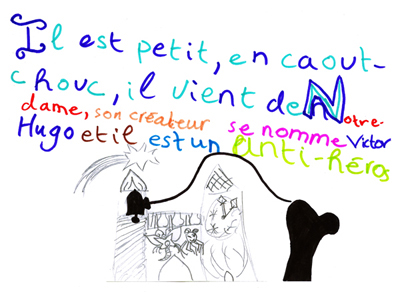 Il est petit, en caout-
chouc, il vient de Notre-
dame, son créateur se nomme Victor
Hugo et il est un Anti-héros